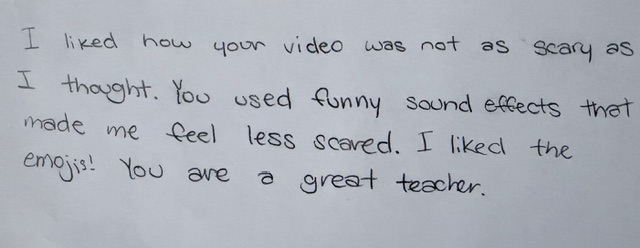 I liked how your video was not as scary as
I thought. You used funny sound effects that
made me feel less scared. I liked the
emojis! You are a great teacher.